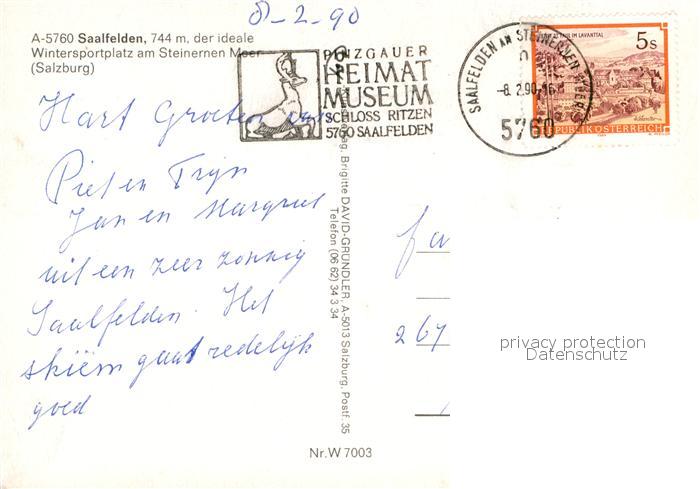 8-2-90
A-5760 Saalfelden, 744 m, der ideale
Wintersportplatz am Steinernen Meer
(Salzburg)
PINZGAUER
HEIMAT
MUSEUM
SCHLOSS RITZEN
5760 SAALFELDEN
SAALFELDEN AM STEINERNEN MEER
-8.2.90-16
5760
ST. PAUL IM LAVANTTAL
5 S
REPUBLIK ÖSTERREICH
Hart Groeten van
Piet en Trijn
Jan en Margriet
uit een zeer zonnig
Saalfelden. Het
skiëen gaat redelijk
goed
Brigitte DAVID-GRUNDLER, A-5013 Salzburg, Postf. 35
Telefon (06 62) 34 3 34
fa
267
privacy protection
Datenschutz
Nr. W 7003